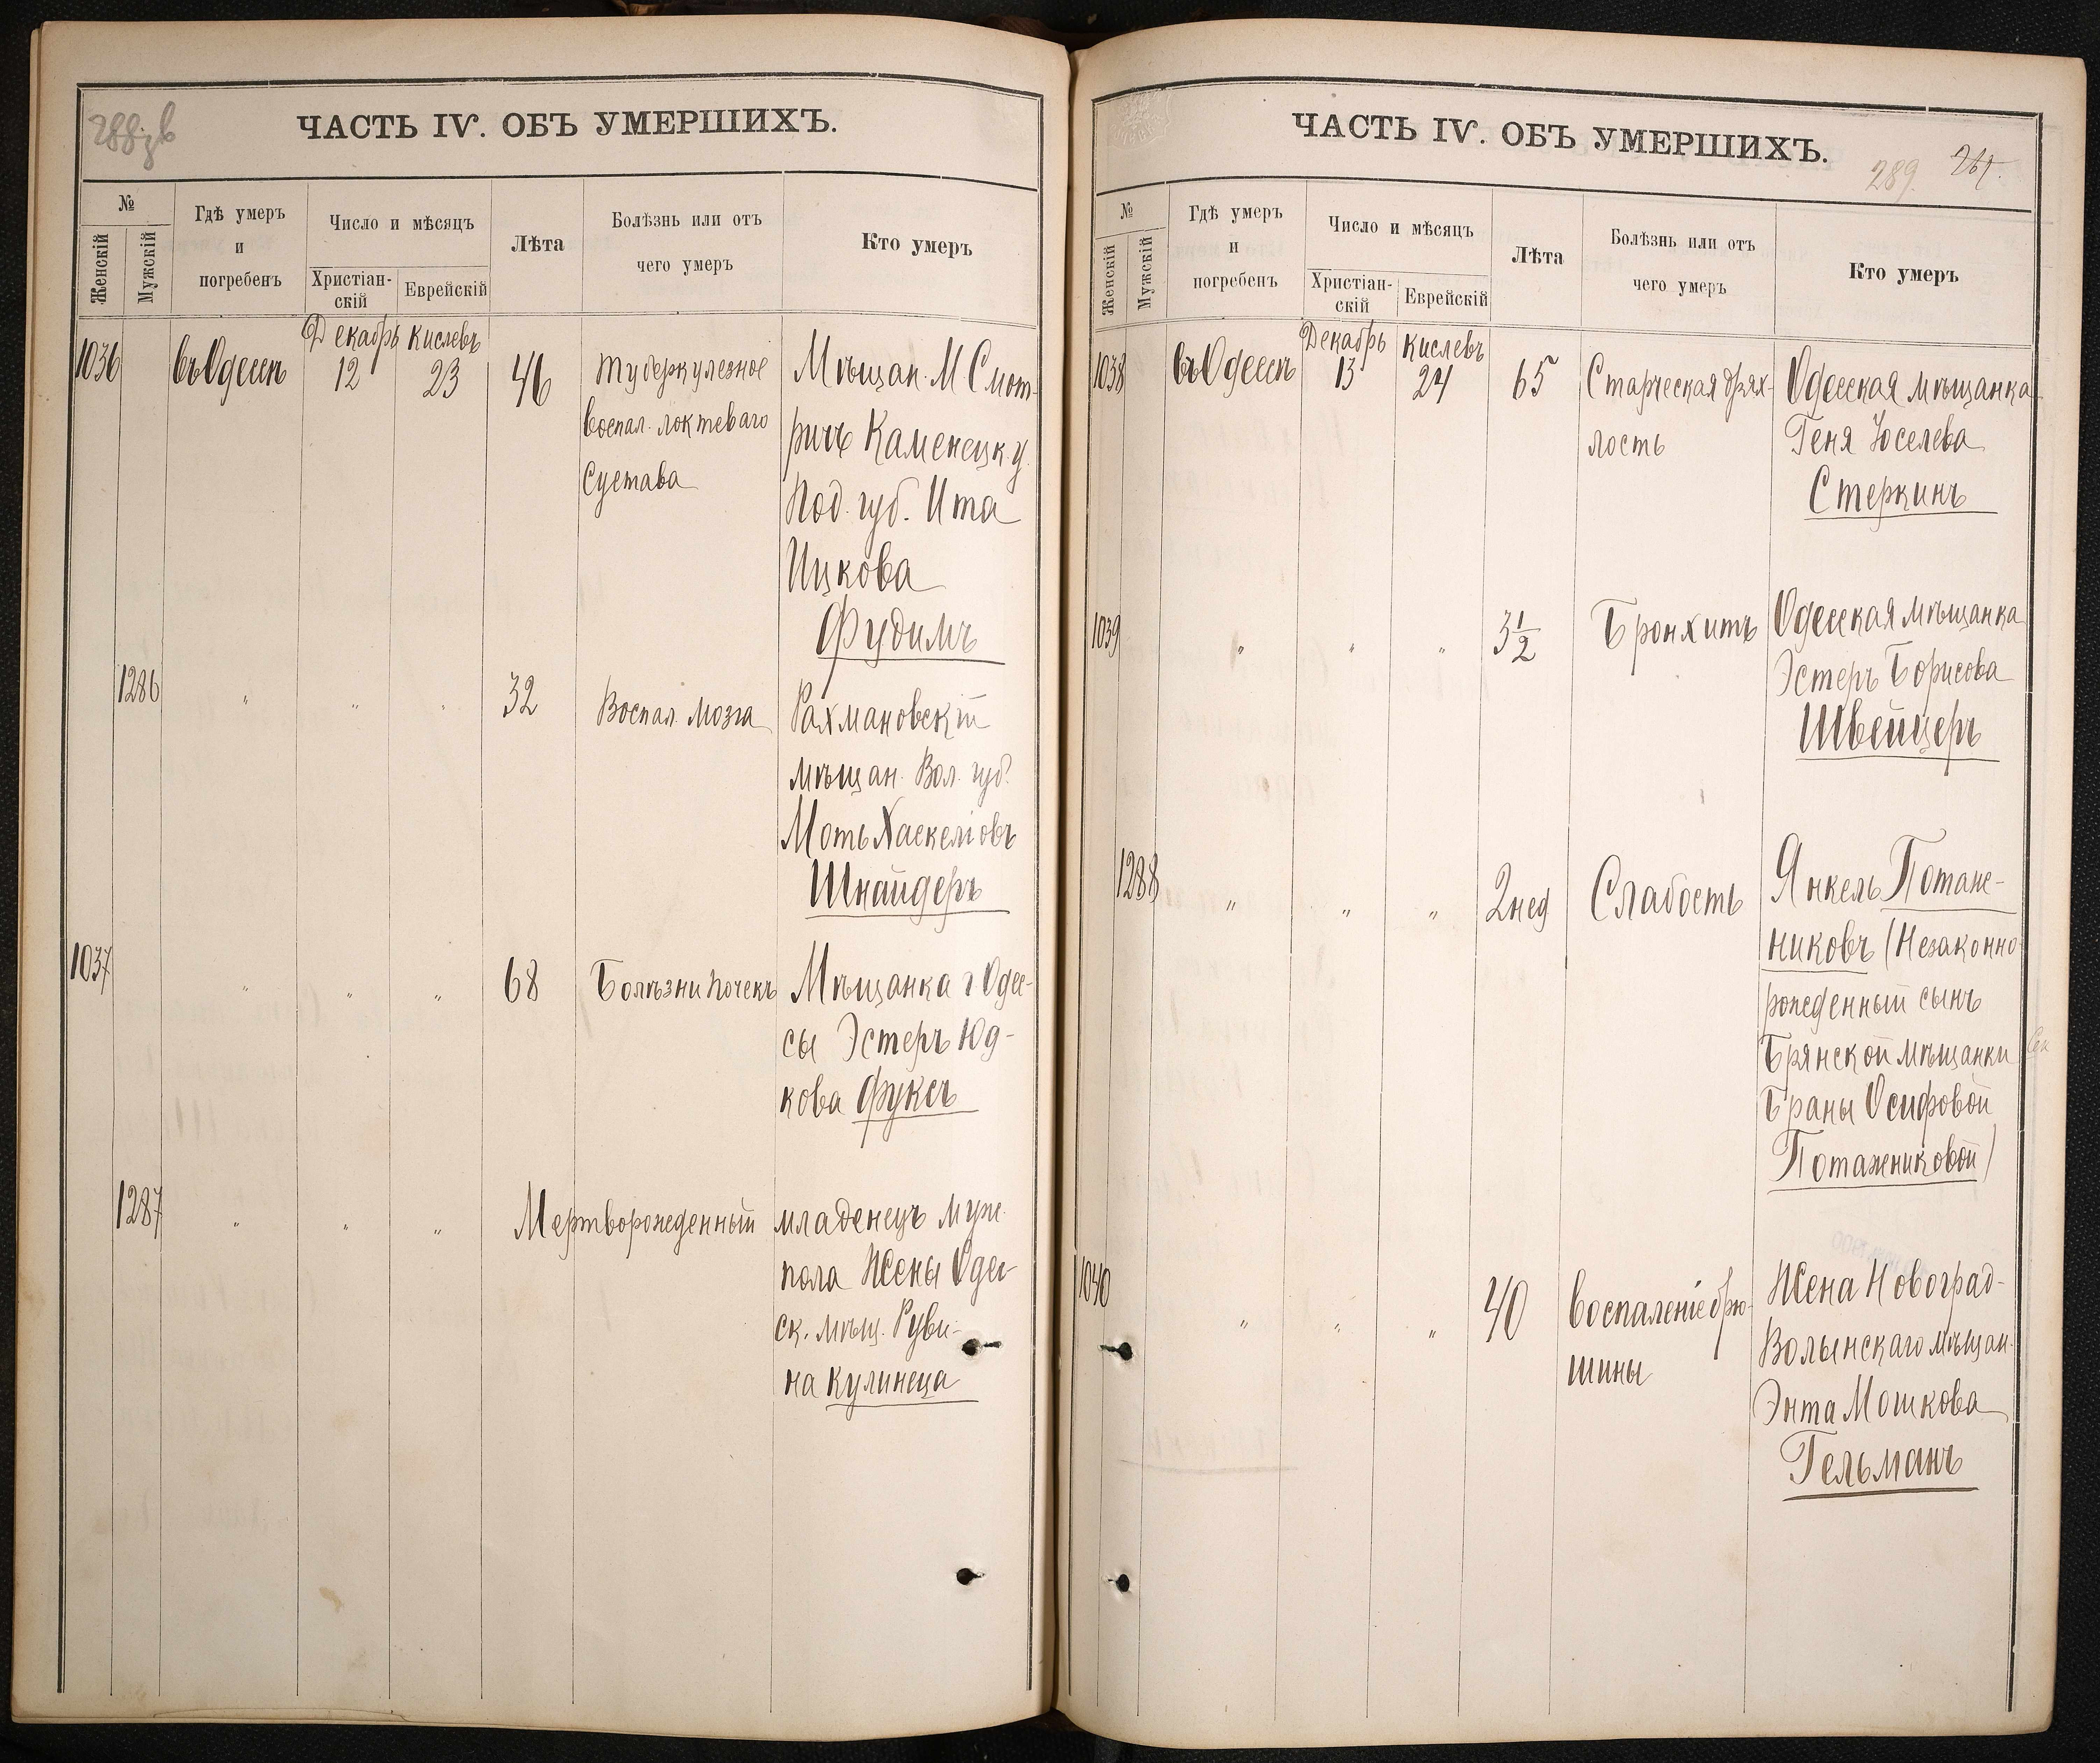 ЧАСТЬ IV. ОБЪ УМЕРШИХЪ.
№
Женскій
Мужскій
Гдѣ умеръ
и
погребенъ
Число и мѣсяцъ
Христіан-
скій
Еврейскій
Лѣта
Болѣзнь или отъ
чего умеръ
Кто умеръ
Декабрь Кислевъ
1036 въ Одессѣ 12 23 46 Туберкулезное Мѣщан. М Смот-
воспал. локтеваго ричъ Каменецк. у.
Сустава Под. губ. Ита
Ицкова
Фудимъ
1286 " " " 32 Воспал. мозга Рахмановскій
мѣщан. Вол. губ.
Моть Хаскеліовъ
Шнайдеръ
1037 " " " 68 Болѣзни почекъ Мѣщанка г Одес-
сы Эстеръ Юд-
кова Фуксъ
1287 " " " Мертворожденный младенецъ муж.
пола Жены Одес-
ск. мѣщ. Руви-
на Кулинеца
ЧАСТЬ IV. ОБЪ УМЕРШИХЪ.
289.
№
Женскій
Мужскій
Гдѣ умеръ
и
погребенъ
Число и мѣсяцъ
Христіан-
скій
Еврейскій
Лѣта
Болѣзнь или отъ
чего умеръ
Кто умеръ
Декабрь Кислевъ
1038 въ Одессѣ 13 24 65 Старческая дрях- Одесская мѣщанка
лость Геня Іоселева
Стеркинъ
1039 " " " 3 1/2 Бронхитъ Одесская мѣщанка
Эстеръ Борисова
Швейцеръ
1288 " " " 2 нед Слабость Янкель Потаже-
никовъ (Незаконно-
рожденный сынъ
Брянской мѣщанки
Браны Осифовой
Потажениковой)
1040 " " " 40 воспаленіе брю- Жена Новоград-
шины Волынскаго мѣщан.
Энта Мошкова
Гельманъ